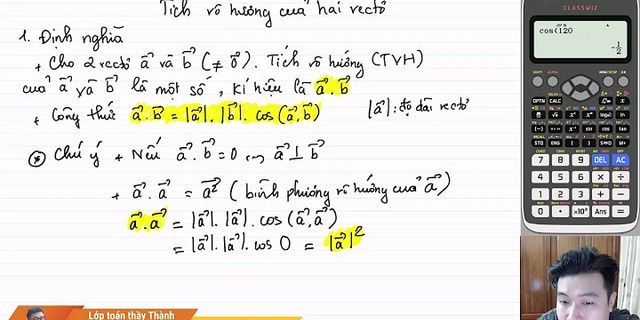 Tích vô hướng của hai vectơ
1. Định nghĩa
+ Cho 2 vectơ a⃗ và b⃗ (≠ 0⃗). Tích vô hướng (TVH)
của a⃗ và b⃗ là một số, kí hiệu là a⃗.b⃗
+ Công thức a⃗.b⃗ = |a⃗|.|b⃗|.cos(a⃗,b⃗) |a⃗|: độ dài vectơ
* Chú ý + Nếu a⃗.b⃗ = 0 ⇔ a⃗ ⊥ b⃗
+ a⃗.a⃗ = a⃗² (bình phương vô hướng của a⃗)
a⃗.a⃗ = |a⃗|.|a⃗|.cos(a⃗,a⃗)
= |a⃗|.|a⃗|.cos 0 = |a⃗|²
Lớp toán thầy Thành
CLASSWIZ
cos(120
-1/2
OPTN CALC
7 8 9 DEL AC
4 5 6 × ÷
1 2 3 + −
0 . Ans =